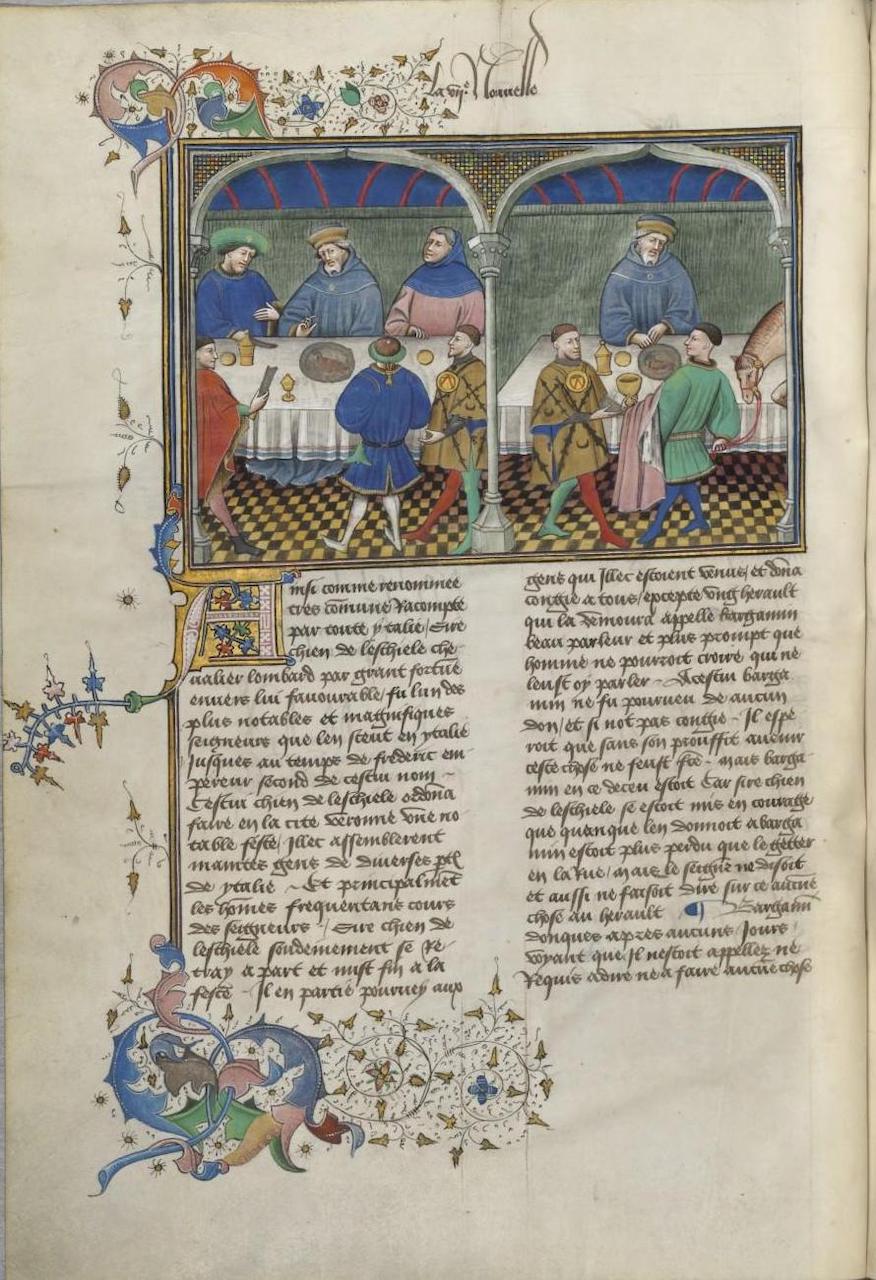 La vije Nouuelle
Ainsi comme renommee
tres cōmune Racompte
par toute ytalie / Sire
chien de leschiele che-
ualier lombard par grant fortūe
enuers lui fauourable / fu lun des
plus notables et magnifiques
seigneurs que len sceut en ytalie
Jusques au temps de frederic em-
pereur second de cestui nom ~
Cestui chien de leschiele ordōna
faire en la cite veronne vne no
table feste / Illec assemblerent
maintes gens de diuerses ptīes
de ytalie ~ Et principalmēt
les hōmes frequentans cours
des seigneurs / Sire chien de
leschiele soudenement se Re-
tray a part et mist fin a la
feste ~ Il en partie pourueu aux
gens qui Illec estoient venus / et dōna
congie a tous / excepte vng herault
qui la demoura appelle bargamin
beau parleur et plus prompt que
homme ne pourroit croire qui ne
leust oy parler ~ Acestui barga
min ne fu pourueu de aucun
don / et si not pas congie ~ Il espe
roit que sans son prouffit auenir
ceste chose ne feust fcē ~ Mais barga
min en ce deceu estoit Car sire chien
de leschiele se estoit mis en courage
que quanque len donnoit a barga
min estoit plus perdu que le getter
en la Rue / mais le seignr̄ ne disoit
et aussi ne faisoit dire sur ce aucūe
chose au herault Bargamī
donques apres aucuns Jours
voyant que Il nestoit appellez ne
Requis adire ne a faire aucūe chose